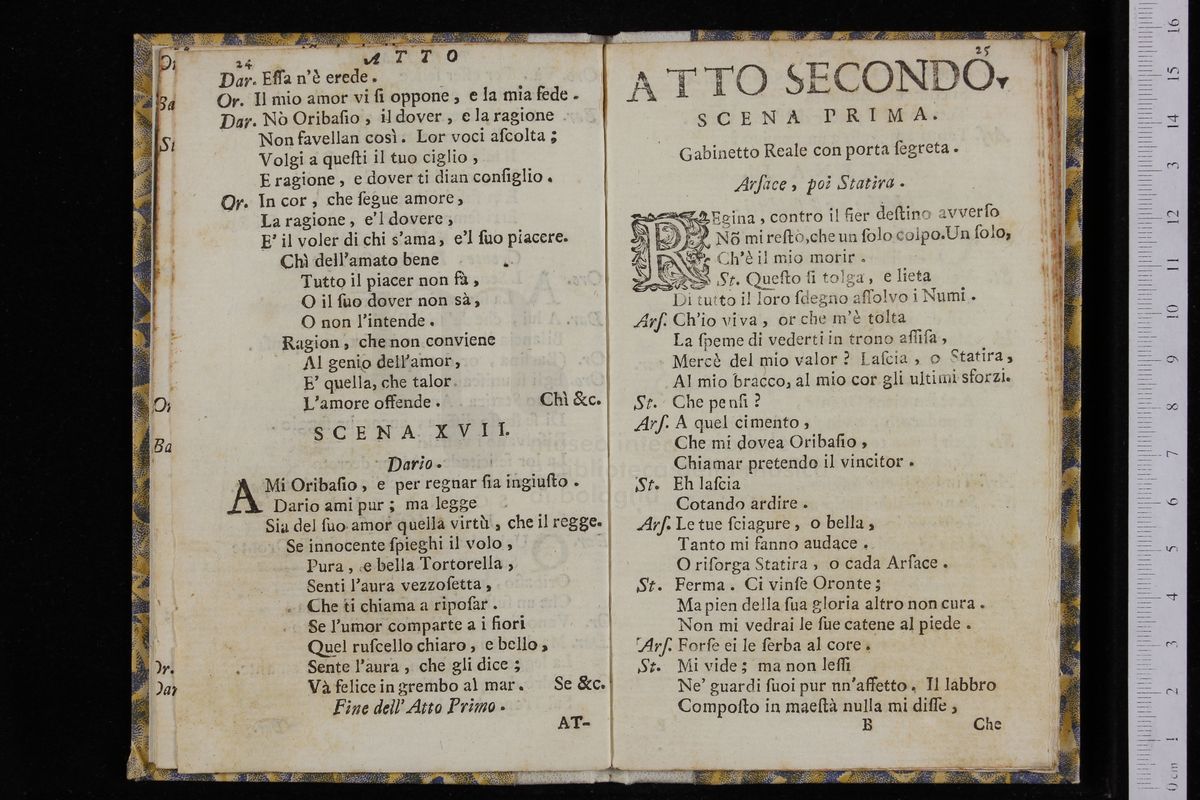 24 ATTO
Dar. Eſſa n'è erede.
Or. Il mio amor vi ſi oppone, e la mia fede.
Dar. Nò Oribaſio, il dover, e la ragione
Non favellan così. Lor voci aſcolta;
Volgi a queſti il tuo ciglio,
E ragione, e dover ti dian conſiglio.
Or. In cor, che ſegue amore,
La ragione, e'l dovere,
E' il voler di chi s'ama, e'l ſuo piacere.
Chì dell'amato bene
Tutto il piacer non fà,
O il ſuo dover non sà,
O non l'intende.
Ragion, che non conviene
Al genio dell'amor,
E' quella, che talor
L'amore offende. Chì &c.
SCENA XVII.
Dario.
AMi Oribaſio, e per regnar ſia ingiuſto.
Dario ami pur; ma legge
Sia del ſuo amor quella virtù, che il regge.
Se innocente ſpieghi il volo,
Pura, e bella Tortorella,
Senti l'aura vezzoſetta,
Che ti chiama a ripoſar.
Se l'umor comparte a i fiori
Quel ruſcello chiaro, e bello,
Sente l'aura, che gli dice;
Và felice in grembo al mar. Se &c.
Fine dell'Atto Primo.
AT-
25
ATTO SECONDO,
SCENA PRIMA.
Gabinetto Reale con porta ſegreta.
Arſace, poi Statira.
REgina, contro il fier deſtino avverſo
Nõ mi reſtò, che un ſolo colpo. Un ſolo,
Ch'è il mio morir.
St. Queſto ſi tolga, e lieta
Di tutto il loro ſdegno aſſolvo i Numi.
Arſ. Ch'io viva, or che m'è tolta
La ſpeme di vederti in trono aſſiſa,
Mercè del mio valor? Laſcia, o Statira,
Al mio bracco, al mio cor gli ultimi sforzi.
St. Che penſi?
Arſ. A quel cimento,
Che mi dovea Oribaſio,
Chiamar pretendo il vincitor.
St. Eh laſcia
Cotando ardire.
Arſ. Le tue ſciagure, o bella,
Tanto mi fanno audace.
O riſorga Statira, o cada Arſace.
St. Ferma. Ci vinſe Oronte;
Ma pien della ſua gloria altro non cura.
Non mi vedrai le ſue catene al piede.
Arſ. Forſe ei le ſerba al core.
St. Mi vide; ma non leſſi
Ne' guardi ſuoi pur nn'affetto. Il labbro
Compoſto in maeſtà nulla mi diſſe,
B Che